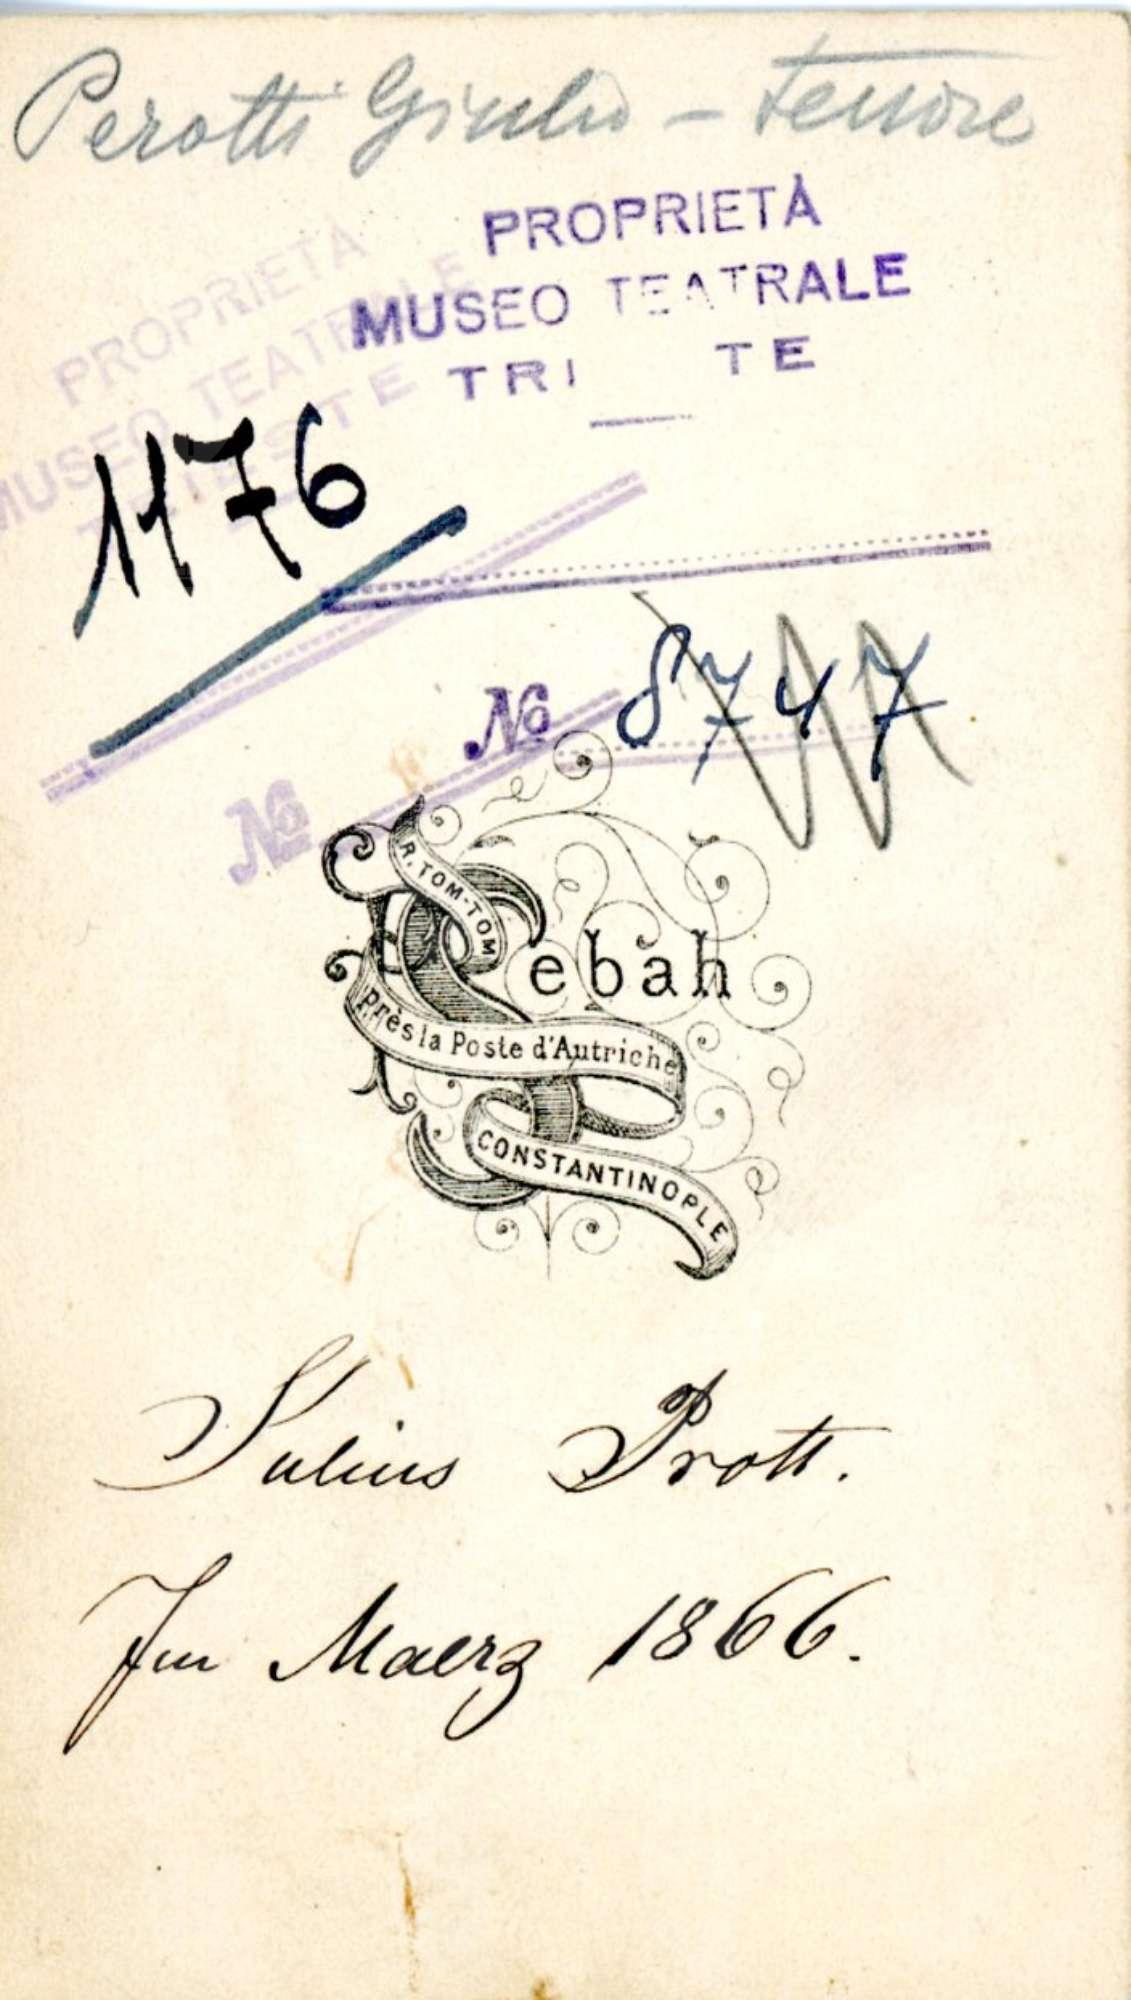 Perotti Giulio - tenore
PROPRIETÀ
MUSEO TEATRALE
TRI TE
PROPRIETÀ
MUSEO TEATRALE
TRIESTE
1176
No 8747
No
R. TOM-TOM
Sebah
Près la Poste d'Autriche
CONSTANTINOPLE
Julius Prott.
Im Maerz 1866.